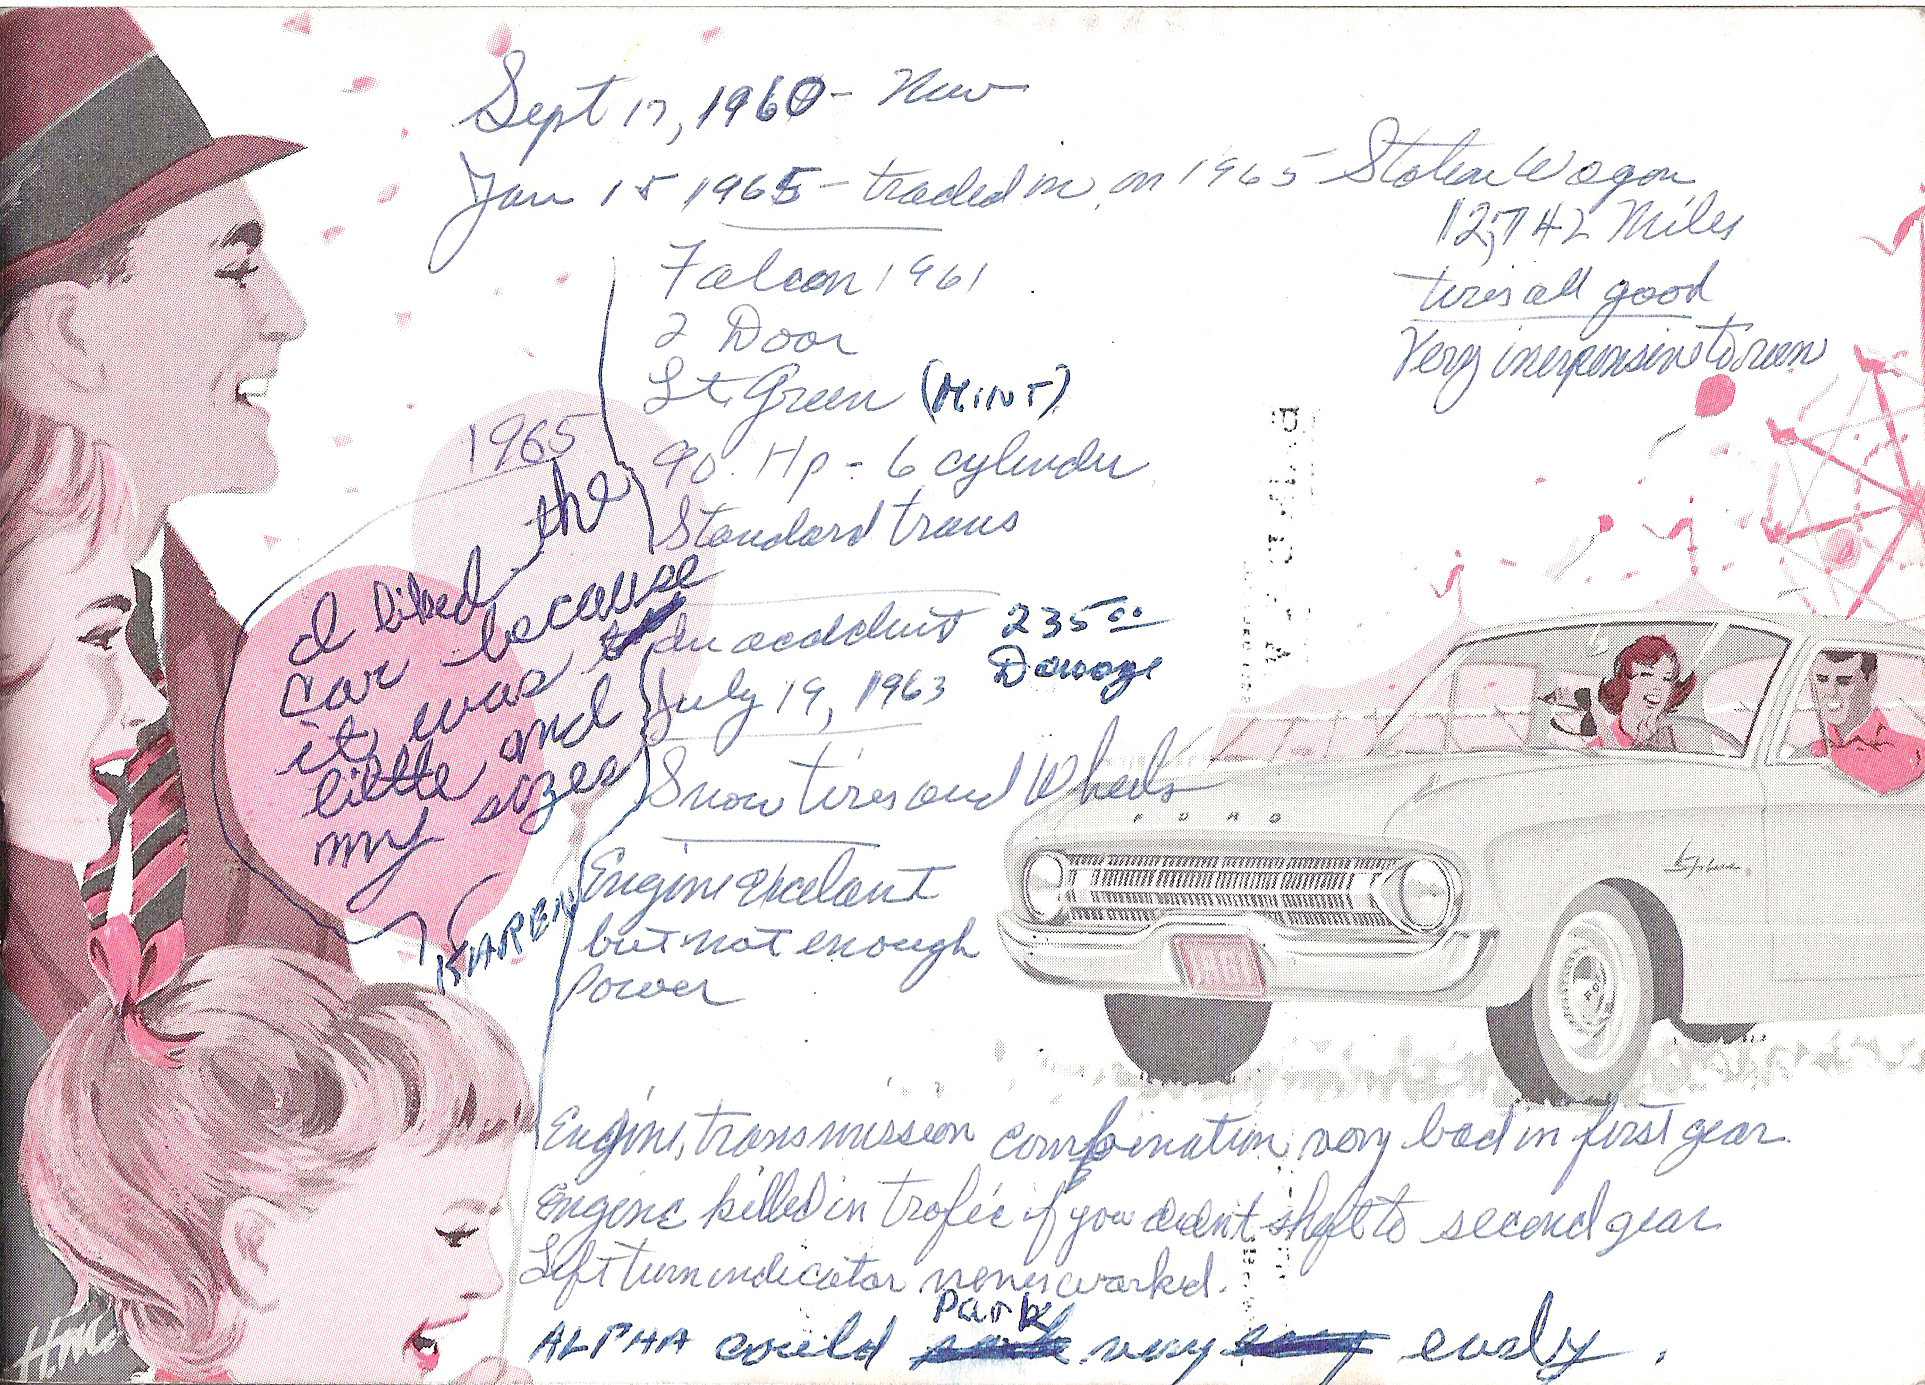 Sept 17, 1960 - New
Jan 15 1965 - traded in on 1965 Station Wagon
12,742 Miles
tires all good
Very inexpensive to run
Falcon 1961
2 Door
Lt. Green (MINT)
90 Hp - 6 cylinder
Standard trans
1965
I liked the
car because
it was
little and
my sizes
KAREN
In accident 235.00
Damage
July 19, 1963
Snow tires and Wheels
FORD
Engine excelant
but not enough
Power
Engine, transmission combination very bad in first gear.
Engine killed in trafic if you didn't shift to second gear
Left turn indicator never worked.
Park
ALPHA could very easly.
FORD